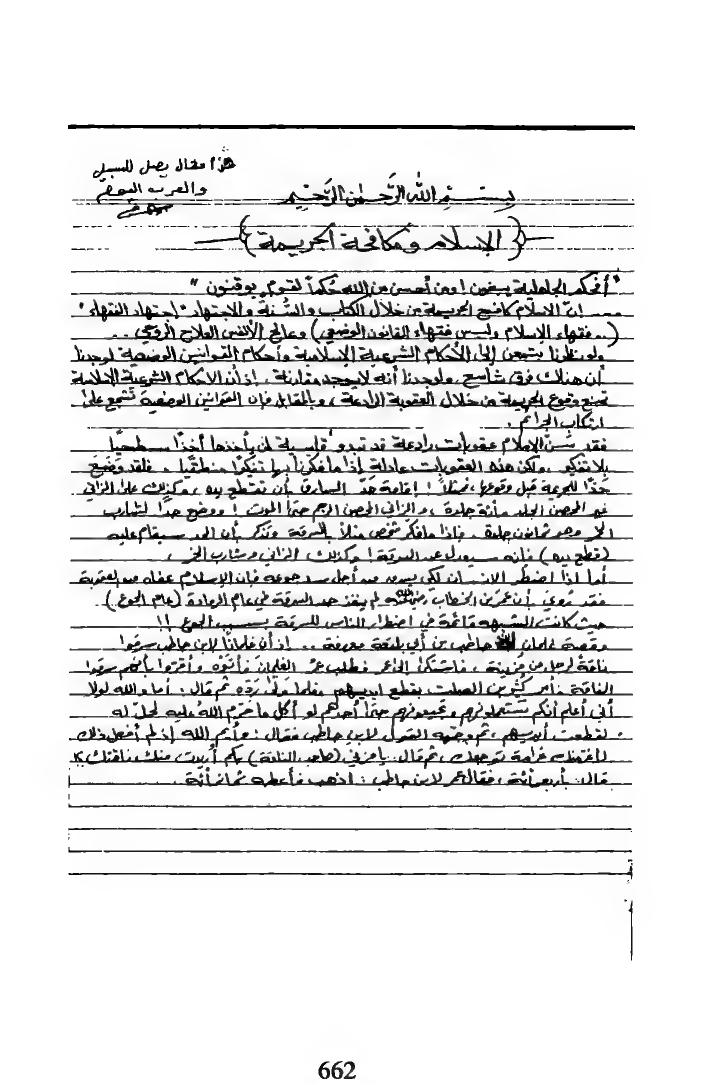 هذا مقال يصل للسبيل
والعرب اليوم
بسم الله الرَّحمن الرَّحيم
{ الإسلام ومكافحة الجريمة }
"أفحكم الجاهلية يبغون ومن أحسن من الله حُكماً لقوم يوقنون"
... إنّ الاسلام كافح الجريمة من خلال الكتاب والسُّنة والاجتهاد "إجتهاد الفقهاء"
(.. فقهاء الإسلام وليس فقهاء القانون الوضعي) وعالج الأنفس العلاج الروحي ..
ولو نظرنا بتمعن إلى الأحكام الشرعية الإسلامية وأحكام القوانين الوضعية لوجدنا
أن هناك فرق شاسع، ولوجدنا أنه لا يوجد مقارنة، إذ أن الاحكام الشرعية الاسلامية
تمنع وقوع الجريمة من خلال العقوبة الرادعة، وبالمقابل فإن القوانين الوضعية تشجع على
ارتكاب الجرائم.
فقد سَنّ الإسلام عقوبات رادعة قد تبدو قاسية لمن يأخذها أخذاً سطحيّاً
بلا تفكير، ولكن هذه العقوبات عادلة إذا ما فكرنا بها تفكيراً منطقياً. فلقد وضع
حَدّاً للجريمة قبل وقوعها، فمثلاً! إقامة حَدّ السارق بأن تقطع يده، وكذلك على الزاني
غير المحصن الجلد مائة جلدة، والزاني المحصن الرجم حتى الموت! ووضع حداً لشارب
الخمر وهو ثمانون جلدة، فإذا ما فكر شخص مثلاً بالسرقة وتذكر بأن الحد سيقام عليه
(قطع يده) فإنه سيعدل عن السرقة! وكذلك الزاني وشارب الخمر.
أما إذا اضطر الانسان لكي يسرق من أجل سد جوعه فإن الإسلام عفاه من العقوبة
فقد رُوي أن عمر بن الخطاب رضي الله عنه لم ينفذ حد السرقة في عام الرمادة (عام الجوع).
حيث كانت الشبهه قائمة في اضطرار الناس للسرقة بسبب الجوع!!
وقصة غلمان حاطب بن أبي بلتعة معروفة .. إذ أن غلماناً لابن حاطب سرقوا
ناقةً لرجل من مُزينة، فاشتكى الى عمر فطلب عمر الغلمان فأتَوْه وأقروا بأنهم سرقوا
الناقة فأمر كُثير بن الصلت بقطع ايديهم، فلما ولّى ردّه ثم قال: أما والله لولا
أني أعلم أنكم تستعملونهم وتجيعونهم حتى أن أحدهم لو أكل ما حرّم اللهُ عليه لحلّ له
لقطعت أيديهم، ثم وجّه القول لابن حاطب فقال: وأيم الله إذ لم أفعل ذلك
لأغرمنك غرامة توجعك، ثم قال: يا مزني (صاحب الناقة) بكم أُريدت منك ناقتك؟
قال: بأربعمائة، فقال عمر لابن حاطب: اذهب فأعطه ثمانمائة.
662